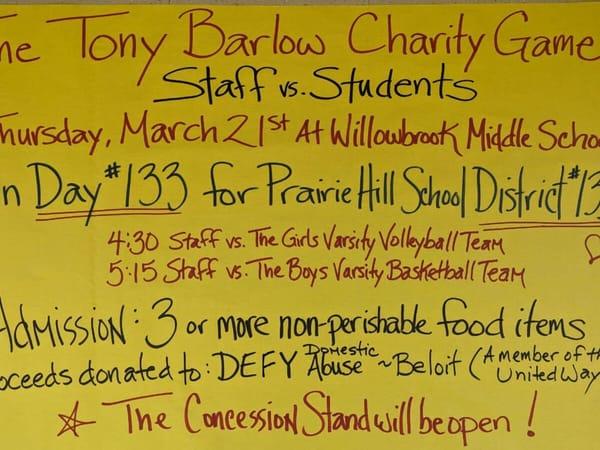 he Tony Barlow Charity Game
Staff vs. Students
hursday, March 21st At Willowbrook Middle Schoo
n Day #133 for Prairie Hill School District #13
4:30 Staff vs. The Girls Varsity Volleyball Team
5:15 Staff vs. The Boys Varsity Basketball Team
Admission: 3 or more non-perishable food items
oceeds donated to: DEFY Domestic Abuse ~Beloit (A member of th United Way
The Concession Stand will be open!